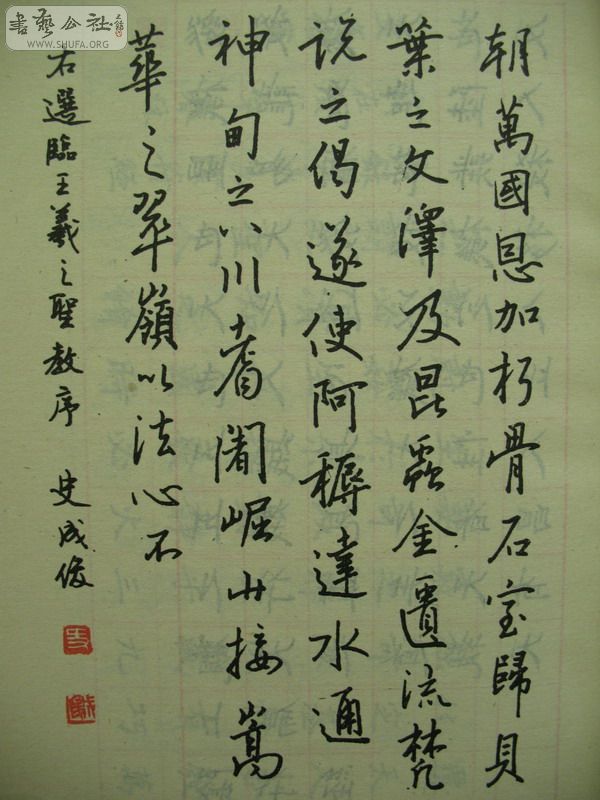 朝萬國恩加朽骨石室歸貝
葉之文澤及昆蟲金匱流梵
說之偈遂使阿耨達水通
神甸之八川耆闍崛山接嵩
華之翠嶺以法心不
右選臨王羲之聖教序 史成俊
書藝公社
www.SHUFA.ORG